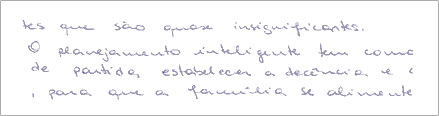 tes que são quase insignificantes.
O planejamento inteligente tem como
de partida, estabelecer a decência e c
, para que a família se alimente